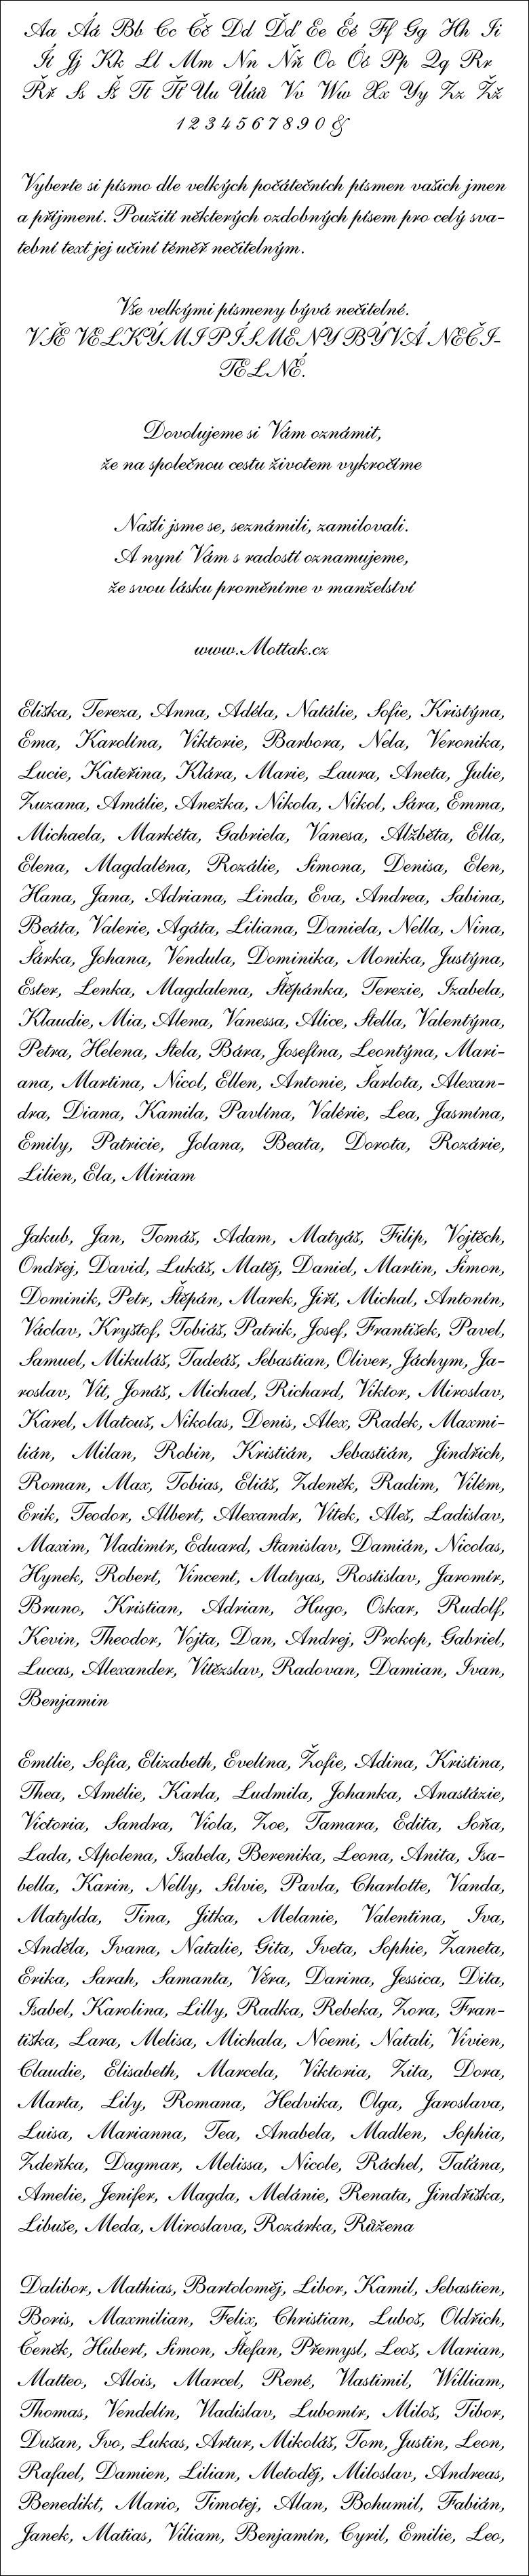 Aa Áá Bb Cc Čč Dd Ďď Ee Éé Ff Gg Hh Ii
Íí Jj Kk Ll Mm Nn Ňň Oo Óó Pp Qq Rr
Řř Ss Šš Tt Ťť Uu Úúů Vv Ww Xx Yy Zz Žž
1 2 3 4 5 6 7 8 9 0 &
Vyberte si písmo dle velkých počátečních písmen vašich jmen
a příjmení. Použití některých ozdobných písem pro celý sva-
tební text jej učiní téměř nečitelným.
Vše velkými písmeny bývá nečitelné.
VŠE VELKÝMI PÍSMENY BÝVÁ NEČI-
TELNÉ.
Dovolujeme si Vám oznámit,
že na společnou cestu životem vykročíme
Našli jsme se, seznámili, zamilovali.
A nyní Vám s radostí oznamujeme,
že svou lásku proměníme v manželství
www.Mottak.cz
Eliška, Tereza, Anna, Adéla, Natálie, Sofie, Kristýna,
Ema, Karolína, Viktorie, Barbora, Nela, Veronika,
Lucie, Kateřina, Klára, Marie, Laura, Aneta, Julie,
Zuzana, Amálie, Anežka, Nikola, Nikol, Sára, Emma,
Michaela, Markéta, Gabriela, Vanesa, Alžběta, Ella,
Elena, Magdaléna, Rozálie, Simona, Denisa, Elen,
Hana, Jana, Adriana, Linda, Eva, Andrea, Sabina,
Beáta, Valerie, Agáta, Liliana, Daniela, Nella, Nina,
Šárka, Johana, Vendula, Dominika, Monika, Justýna,
Ester, Lenka, Magdalena, Štěpánka, Terezie, Izabela,
Klaudie, Mia, Alena, Vanessa, Alice, Stella, Valentýna,
Petra, Helena, Stela, Bára, Josefína, Leontýna, Mari-
ana, Martina, Nicol, Ellen, Antonie, Šarlota, Alexan-
dra, Diana, Kamila, Pavlína, Valérie, Lea, Jasmína,
Emily, Patricie, Jolana, Beata, Dorota, Rozárie,
Lilien, Ela, Miriam
Jakub, Jan, Tomáš, Adam, Matyáš, Filip, Vojtěch,
Ondřej, David, Lukáš, Matěj, Daniel, Martin, Šimon,
Dominik, Petr, Štěpán, Marek, Jiří, Michal, Antonín,
Václav, Kryštof, Tobiáš, Patrik, Josef, František, Pavel,
Samuel, Mikuláš, Tadeáš, Sebastian, Oliver, Jáchym, Ja-
roslav, Vít, Jonáš, Michael, Richard, Viktor, Miroslav,
Karel, Matouš, Nikolas, Denis, Alex, Radek, Maxmi-
lián, Milan, Robin, Kristián, Sebastián, Jindřich,
Roman, Max, Tobias, Eliáš, Zdeněk, Radim, Vilém,
Erik, Teodor, Albert, Alexandr, Vítek, Aleš, Ladislav,
Maxim, Vladimír, Eduard, Stanislav, Damián, Nicolas,
Hynek, Robert, Vincent, Matyas, Rostislav, Jaromír,
Bruno, Kristian, Adrian, Hugo, Oskar, Rudolf,
Kevin, Theodor, Vojta, Dan, Andrej, Prokop, Gabriel,
Lucas, Alexander, Vítězslav, Radovan, Damian, Ivan,
Benjamin
Emílie, Sofia, Elizabeth, Evelína, Žofie, Adina, Kristina,
Thea, Amélie, Karla, Ludmila, Johanka, Anastázie,
Victoria, Sandra, Viola, Zoe, Tamara, Edita, Soňa,
Lada, Apolena, Isabela, Berenika, Leona, Anita, Isa-
bella, Karin, Nelly, Silvie, Pavla, Charlotte, Vanda,
Matylda, Tina, Jitka, Melanie, Valentina, Iva,
Anděla, Ivana, Natalie, Gita, Iveta, Sophie, Žaneta,
Erika, Sarah, Samanta, Věra, Darina, Jessica, Dita,
Isabel, Karolina, Lilly, Radka, Rebeka, Zora, Fran-
tiška, Lara, Melisa, Michala, Noemi, Natali, Vivien,
Claudie, Elisabeth, Marcela, Viktoria, Zita, Dora,
Marta, Lily, Romana, Hedvika, Olga, Jaroslava,
Luisa, Marianna, Tea, Anabela, Madlen, Sophia,
Zdeňka, Dagmar, Melissa, Nicole, Ráchel, Taťána,
Amelie, Jenifer, Magda, Melánie, Renata, Jindřiška,
Libuše, Meda, Miroslava, Rozárka, Růžena
Dalibor, Mathias, Bartoloměj, Libor, Kamil, Sebastien,
Boris, Maxmilian, Felix, Christian, Luboš, Oldřich,
Čeněk, Hubert, Simon, Štefan, Přemysl, Leoš, Marian,
Matteo, Alois, Marcel, René, Vlastimil, William,
Thomas, Vendelín, Vladislav, Lubomír, Miloš, Tibor,
Dušan, Ivo, Lukas, Artur, Mikoláš, Tom, Justin, Leon,
Rafael, Damien, Lilian, Metoděj, Miloslav, Andreas,
Benedikt, Mario, Timotej, Alan, Bohumil, Fabián,
Janek, Matias, Viliam, Benjamín, Cyril, Emilie, Leo,